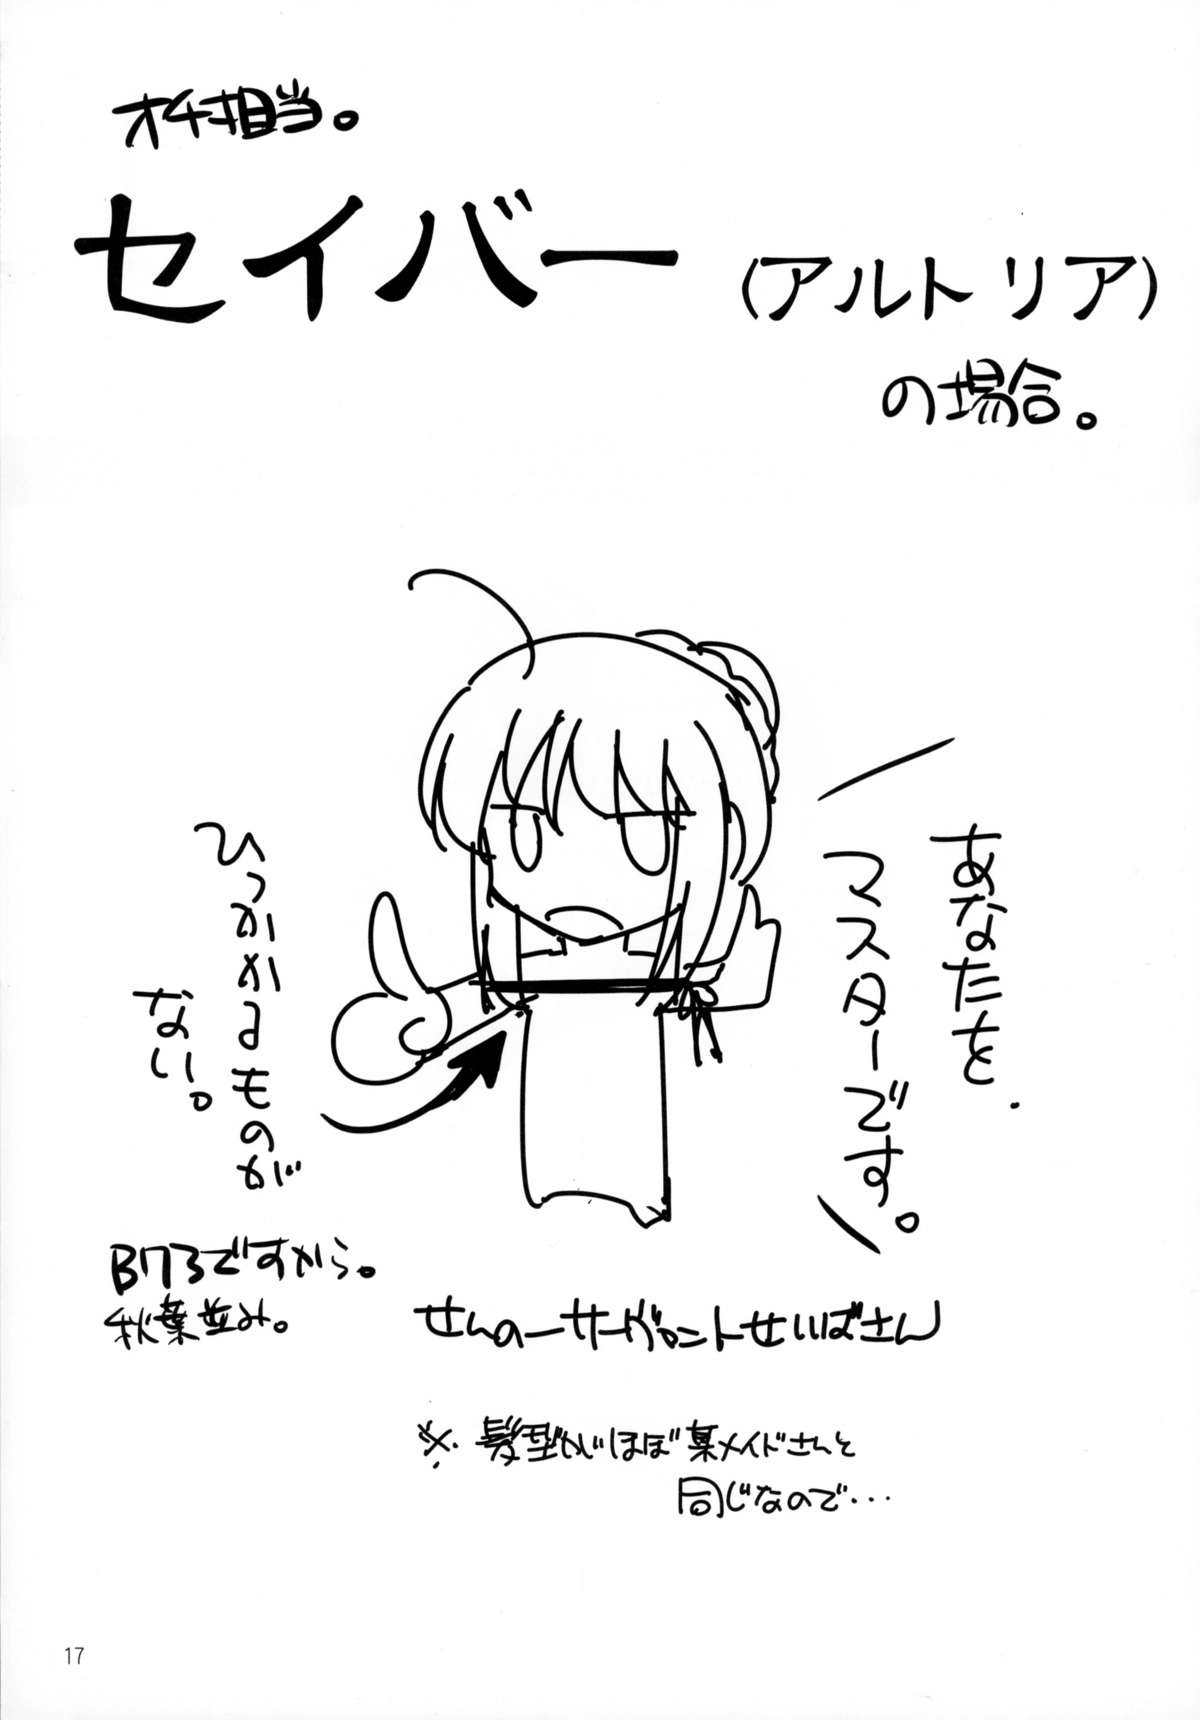 オチ担当。
セイバー(アルトリア)
の場合。
あなたを、
マスターです。
ひっかかるものが
ない。
B73ですから。
秋葉並み。
せんのーサーヴァントせいばさん
※髪型がほぼ某メイドさんと
同じなので…
17